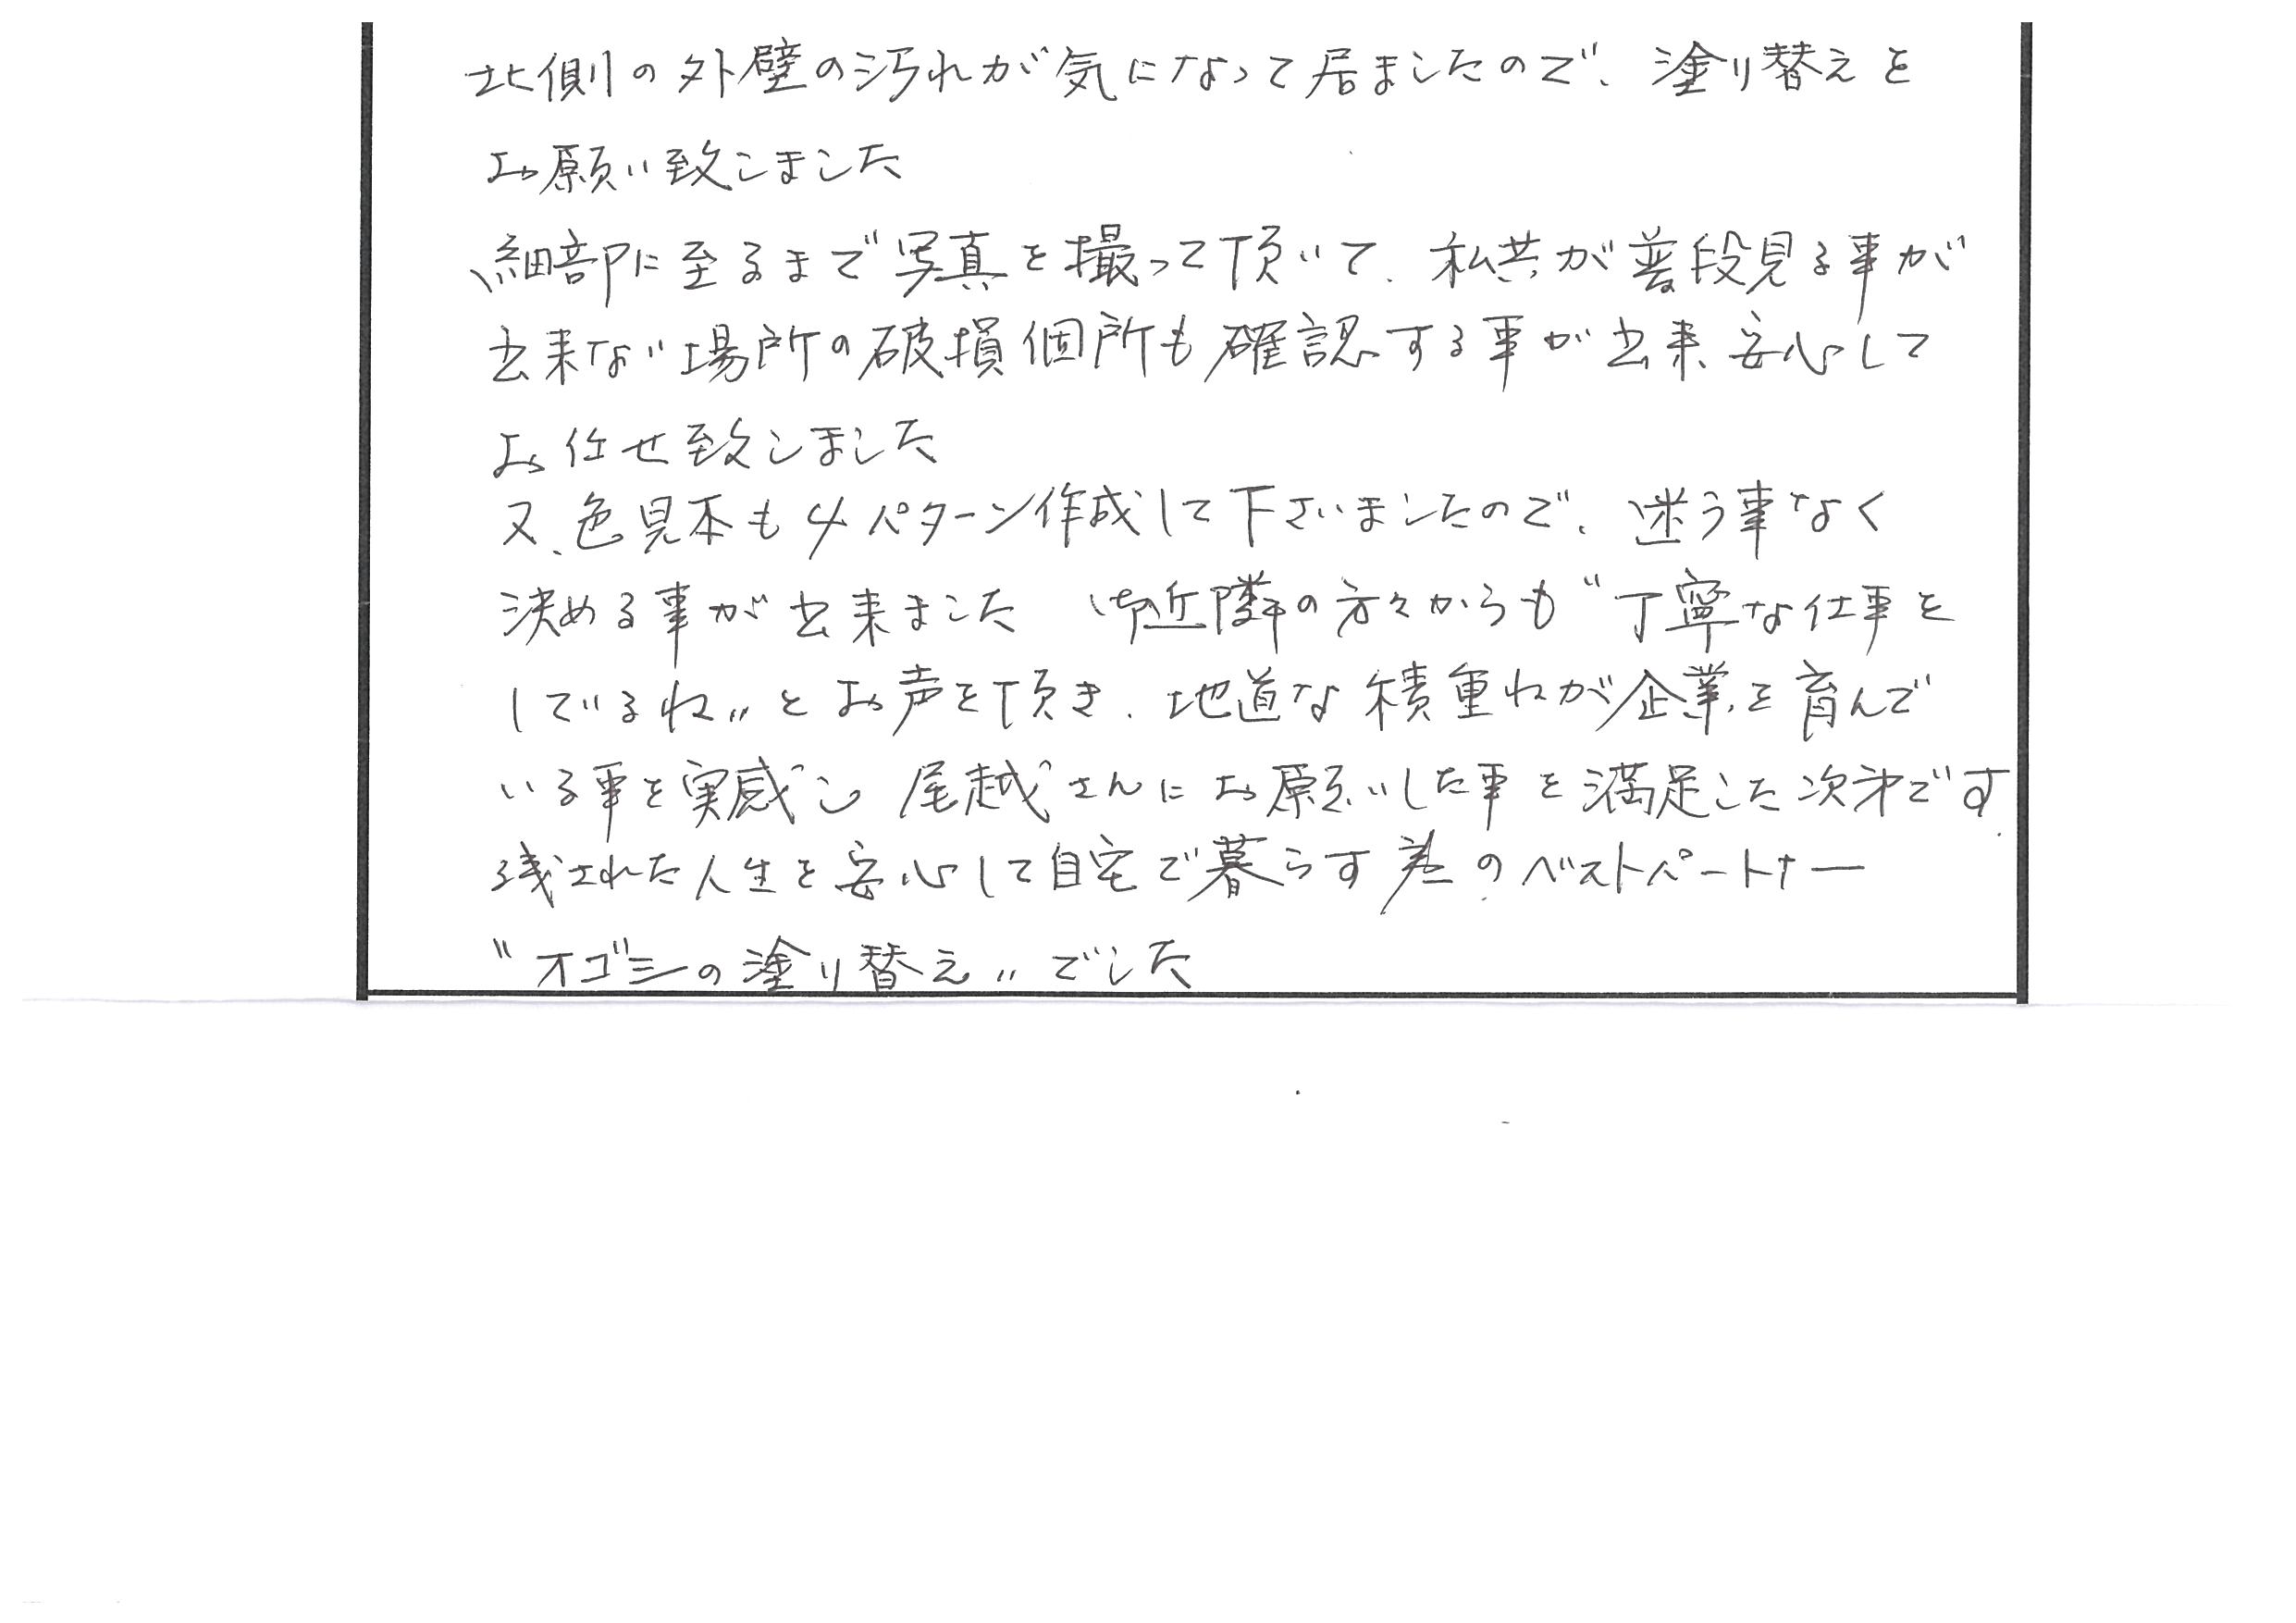 北側の外壁の汚れが気になって居ましたので、塗り替えを
お願い致しました
細部に至るまで写真を撮って頂いて、私共が普段見る事が
出来ない場所の破損個所も確認する事が出来、安心して
お任せ致しました
又、色見本も4パターン作成して下さいましたので、迷う事なく
決める事が出来ました 御近隣の方々からも〝丁寧な仕事を
しているね〟とお声を頂き、地道な積重ねが企業を育んで
いる事を実感し 尾越さんにお願いした事を満足した次第です
残された人生を安心して自宅で暮らす為のベストパートナー
〝オゴシの塗り替え〟でした